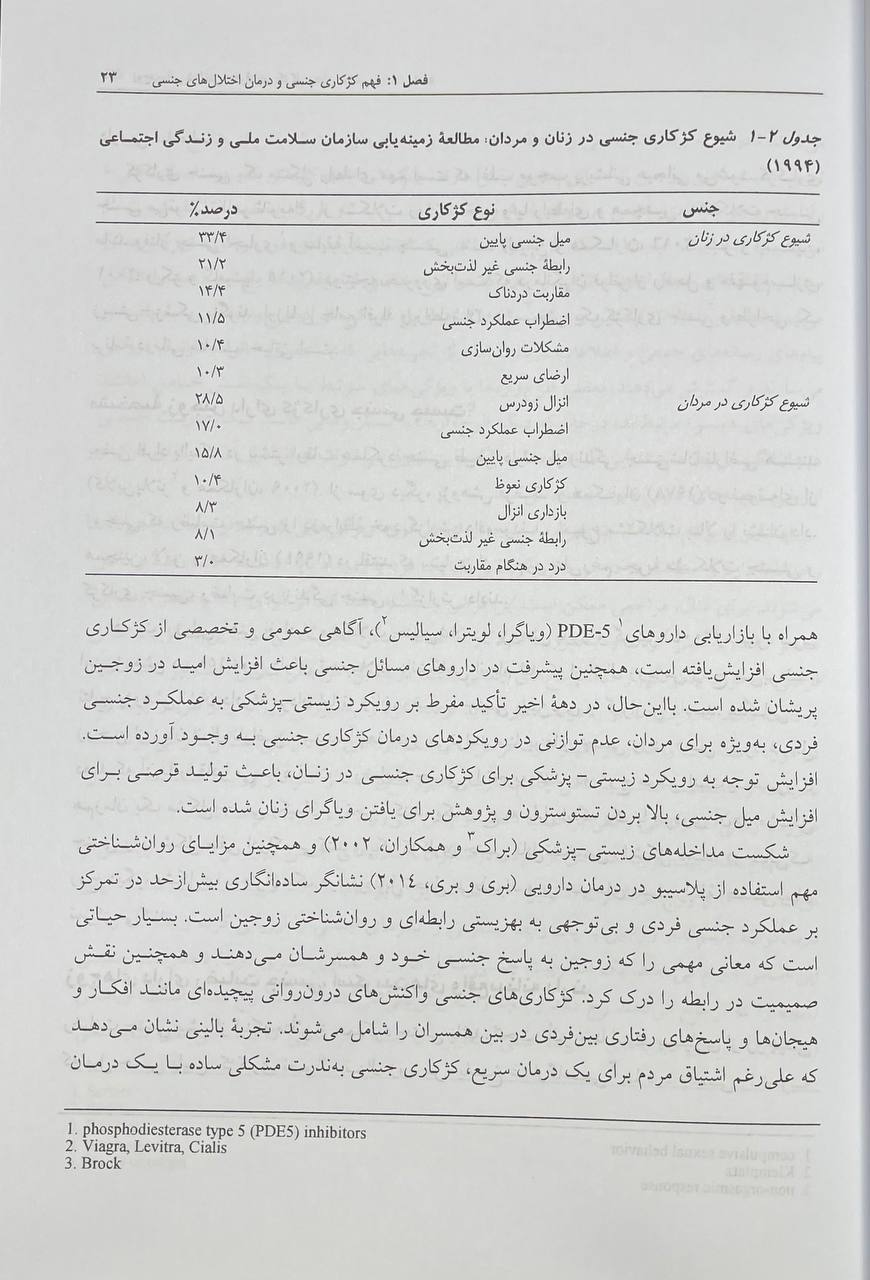 فصل ۱: فهم کژکاری جنسی و درمان اختلال‌های جنسی ۲۳
جدول ۲-۱ شیوع کژکاری جنسی در زنان و مردان: مطالعهٔ زمینه‌یابی سازمان سلامت ملی و زندگی اجتماعی
(۱۹۹۴)
جنس نوع کژکاری درصد%
شیوع کژکاری در زنان میل جنسی پایین ۳۳/۴
رابطهٔ جنسی غیر لذت‌بخش ۲۱/۲
مقاربت دردناک ۱۴/۴
اضطراب عملکرد جنسی ۱۱/۵
مشکلات روان‌سازی ۱۰/۴
ارضای سریع ۱۰/۳
شیوع کژکاری در مردان انزال زودرس ۲۸/۵
اضطراب عملکرد جنسی ۱۷/۰
میل جنسی پایین ۱۵/۸
کژکاری نعوظ ۱۰/۴
بازداری انزال ۸/۳
رابطهٔ جنسی غیر لذت‌بخش ۸/۱
درد در هنگام مقاربت ۳/۰
همراه با بازاریابی داروهای PDE-5 ۱ (ویاگرا، لویترا، سیالیس۲)، آگاهی عمومی و تخصصی از کژکاری
جنسی افزایش‌یافته است، همچنین پیشرفت در داروهای مسائل جنسی باعث افزایش امید در زوجین
پریشان شده است. بااین‌حال، در دههٔ اخیر تأکید مفرط بر رویکرد زیستی-پزشکی به عملکرد جنسی
فردی، به‌ویژه برای مردان، عدم توازنی در رویکردهای درمان کژکاری جنسی به وجود آورده است.
افزایش توجه به رویکرد زیستی- پزشکی برای کژکاری جنسی در زنان، باعث تولید قرصی برای
افزایش میل جنسی، بالا بردن تستوسترون و پژوهش برای یافتن ویاگرای زنان شده است.
شکست مداخله‌های زیستی-پزشکی (براک۳ و همکاران، ۲۰۰۲) و همچنین مزایای روان‌شناختی
مهم استفاده از پلاسیبو در درمان دارویی (بری و بری، ۲۰۱٤) نشانگر ساده‌انگاری بیش‌ازحد در تمرکز
بر عملکرد جنسی فردی و بی‌توجهی به بهزیستی رابطه‌ای و روان‌شناختی زوجین است. بسیار حیاتی
است که معانی مهمی را که زوجین به پاسخ جنسی خود و همسرشان می‌دهند و همچنین نقش
صمیمیت در رابطه را درک کرد. کژکاری‌های جنسی واکنش‌های درون‌روانی پیچیده‌ای مانند افکار و
هیجان‌ها و پاسخ‌های رفتاری بین‌فردی در بین همسران را شامل می‌شوند. تجربهٔ بالینی نشان می‌دهد
که علی‌رغم اشتیاق مردم برای یک درمان سریع، کژکاری جنسی به‌ندرت مشکلی ساده با یک درمان
1. phosphodiesterase type 5 (PDE5) inhibitors
2. Viagra, Levitra, Cialis
3. Brock